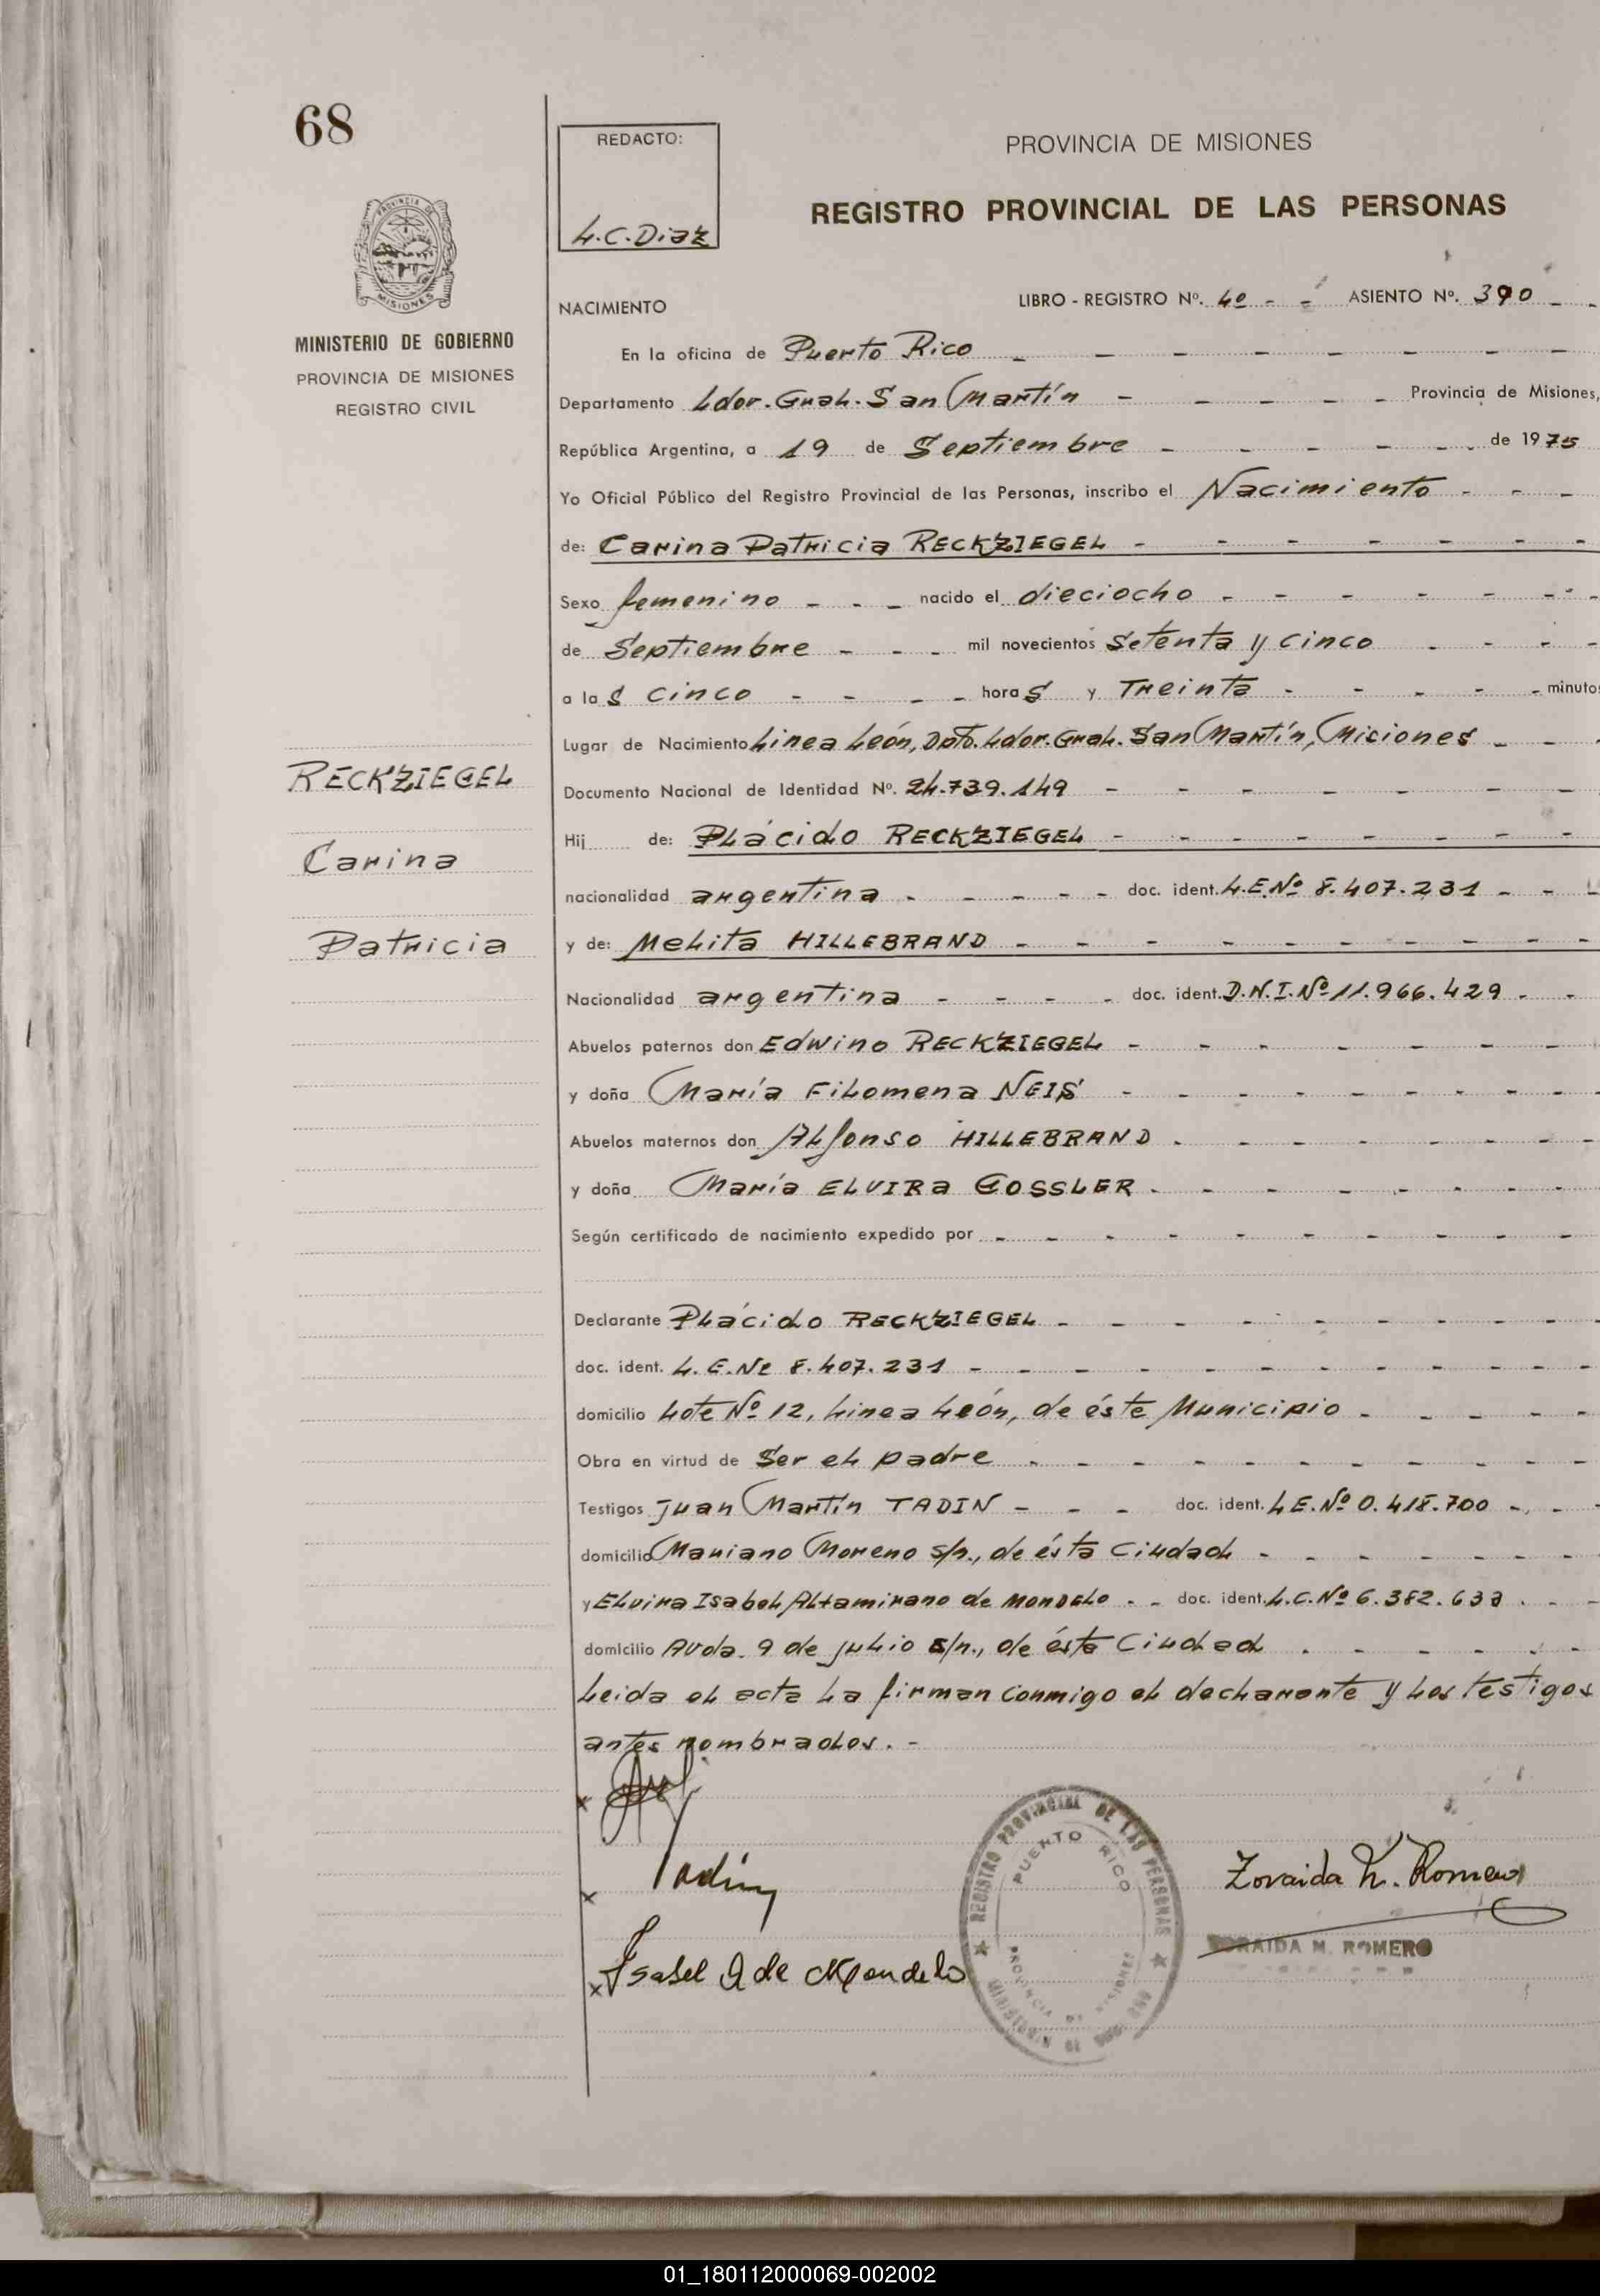 68
REDACTO:
L.C. Diaz
PROVINCIA DE MISIONES
REGISTRO PROVINCIAL DE LAS PERSONAS
PROVINCIA DE
MISIONES
MINISTERIO DE GOBIERNO
PROVINCIA DE MISIONES
REGISTRO CIVIL
NACIMIENTO LIBRO - REGISTRO Nº. 4º - - ASIENTO Nº. 390 - -
En la oficina de Puerto Rico
Departamento Ldor. Gral. San Martín - Provincia de Misiones,
República Argentina, a 19 de Septiembre - de 1975
Yo Oficial Público del Registro Provincial de las Personas, inscribo el Nacimiento
de: Carina Patricia RECKZIEGEL
Sexo femenino - - - nacido el dieciocho
de Septiembre - - - mil novecientos Setenta y cinco
a las cinco - - - horas y Treinta - minutos
Lugar de Nacimiento Linea León, Dpto. Ldor. Gral. San Martín, Misiones
Documento Nacional de Identidad Nº. 24.739.149
Hij de: PLácido RECKZIEGEL
nacionalidad argentina - doc. ident. L.E.Nº 8.407.231
y de: Melita HILLEBRAND
Nacionalidad argentina - doc. ident. D.N.I.Nº 11.966.429
Abuelos paternos don Edwino RECKZIEGEL
y doña María Filomena NEIS
Abuelos maternos don Alfonso HILLEBRAND
y doña María ELVIRA GOSSLER
Según certificado de nacimiento expedido por
Declarante PLácido RECKZIEGEL
doc. ident. L.E.Nº 8.407.231
domicilio Lote Nº 12, Linea León, de éste Municipio
Obra en virtud de Ser el padre
Testigos Juan Martín TADIN - - - doc. ident. L.E.Nº 0.418.700
domicilio Mariano Moreno s/n., de ésta Ciudad
y Elvira Isabel Altamirano de Mondelo - - doc. ident. L.C.Nº 6.382.633
domicilio Avda. 9 de julio s/n., de ésta Ciudad
Leida el acta la firman conmigo el declarante y los testigos
antes nombrados. -
RECKZIEGEL
Carina
Patricia
x
x Tadin
x Isabel A de Mondelo
REGISTRO PROVINCIAL DE LAS PERSONAS
PUERTO RICO
PROVINCIA DE MISIONES
MINISTERIO DE GOBIERNO
Zoraida N. Romero
ZORAIDA N. ROMERO
01_180112000069-002002